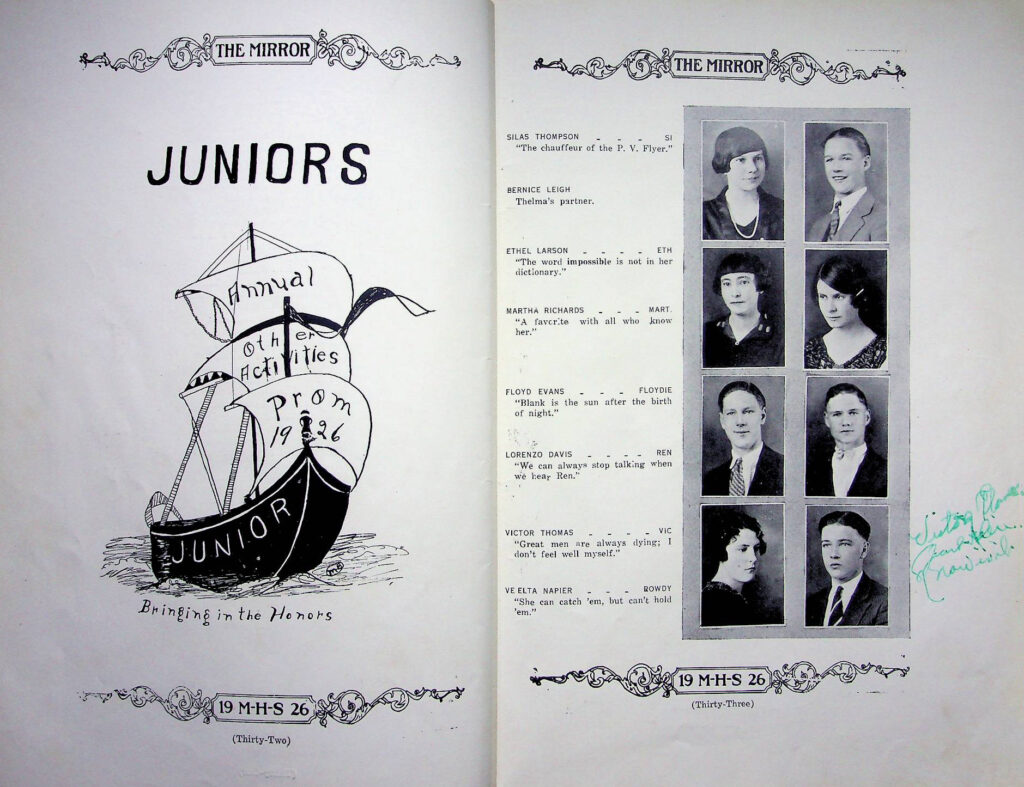 THE MIRROR
JUNIORS
Annual
Other
Activities
Prom
1926
JUNIOR
Bringing in the Honors
19 M-H-S 26
(Thirty-Two)
THE MIRROR
SILAS THOMPSON _ _ _ SI
"The chauffeur of the P. V. Flyer."
BERNICE LEIGH
Thelma's partner.
ETHEL LARSON _ _ _ _ ETH
"The word impossible is not in her
dictionary."
MARTHA RICHARDS _ _ _ MART.
"A favorite with all who know
her."
FLOYD EVANS _ _ _ FLOYDIE
"Blank is the sun after the birth
of night."
LORENZO DAVIS _ _ _ _ REN
"We can always stop talking when
we hear Ren."
VICTOR THOMAS _ _ _ _ VIC
"Great men are always dying; I
don't feel well myself."
VEELTA NAPIER _ _ _ ROWDY
"She can catch 'em, but can't hold
'em."
19 M-H-S 26
(Thirty-Three)